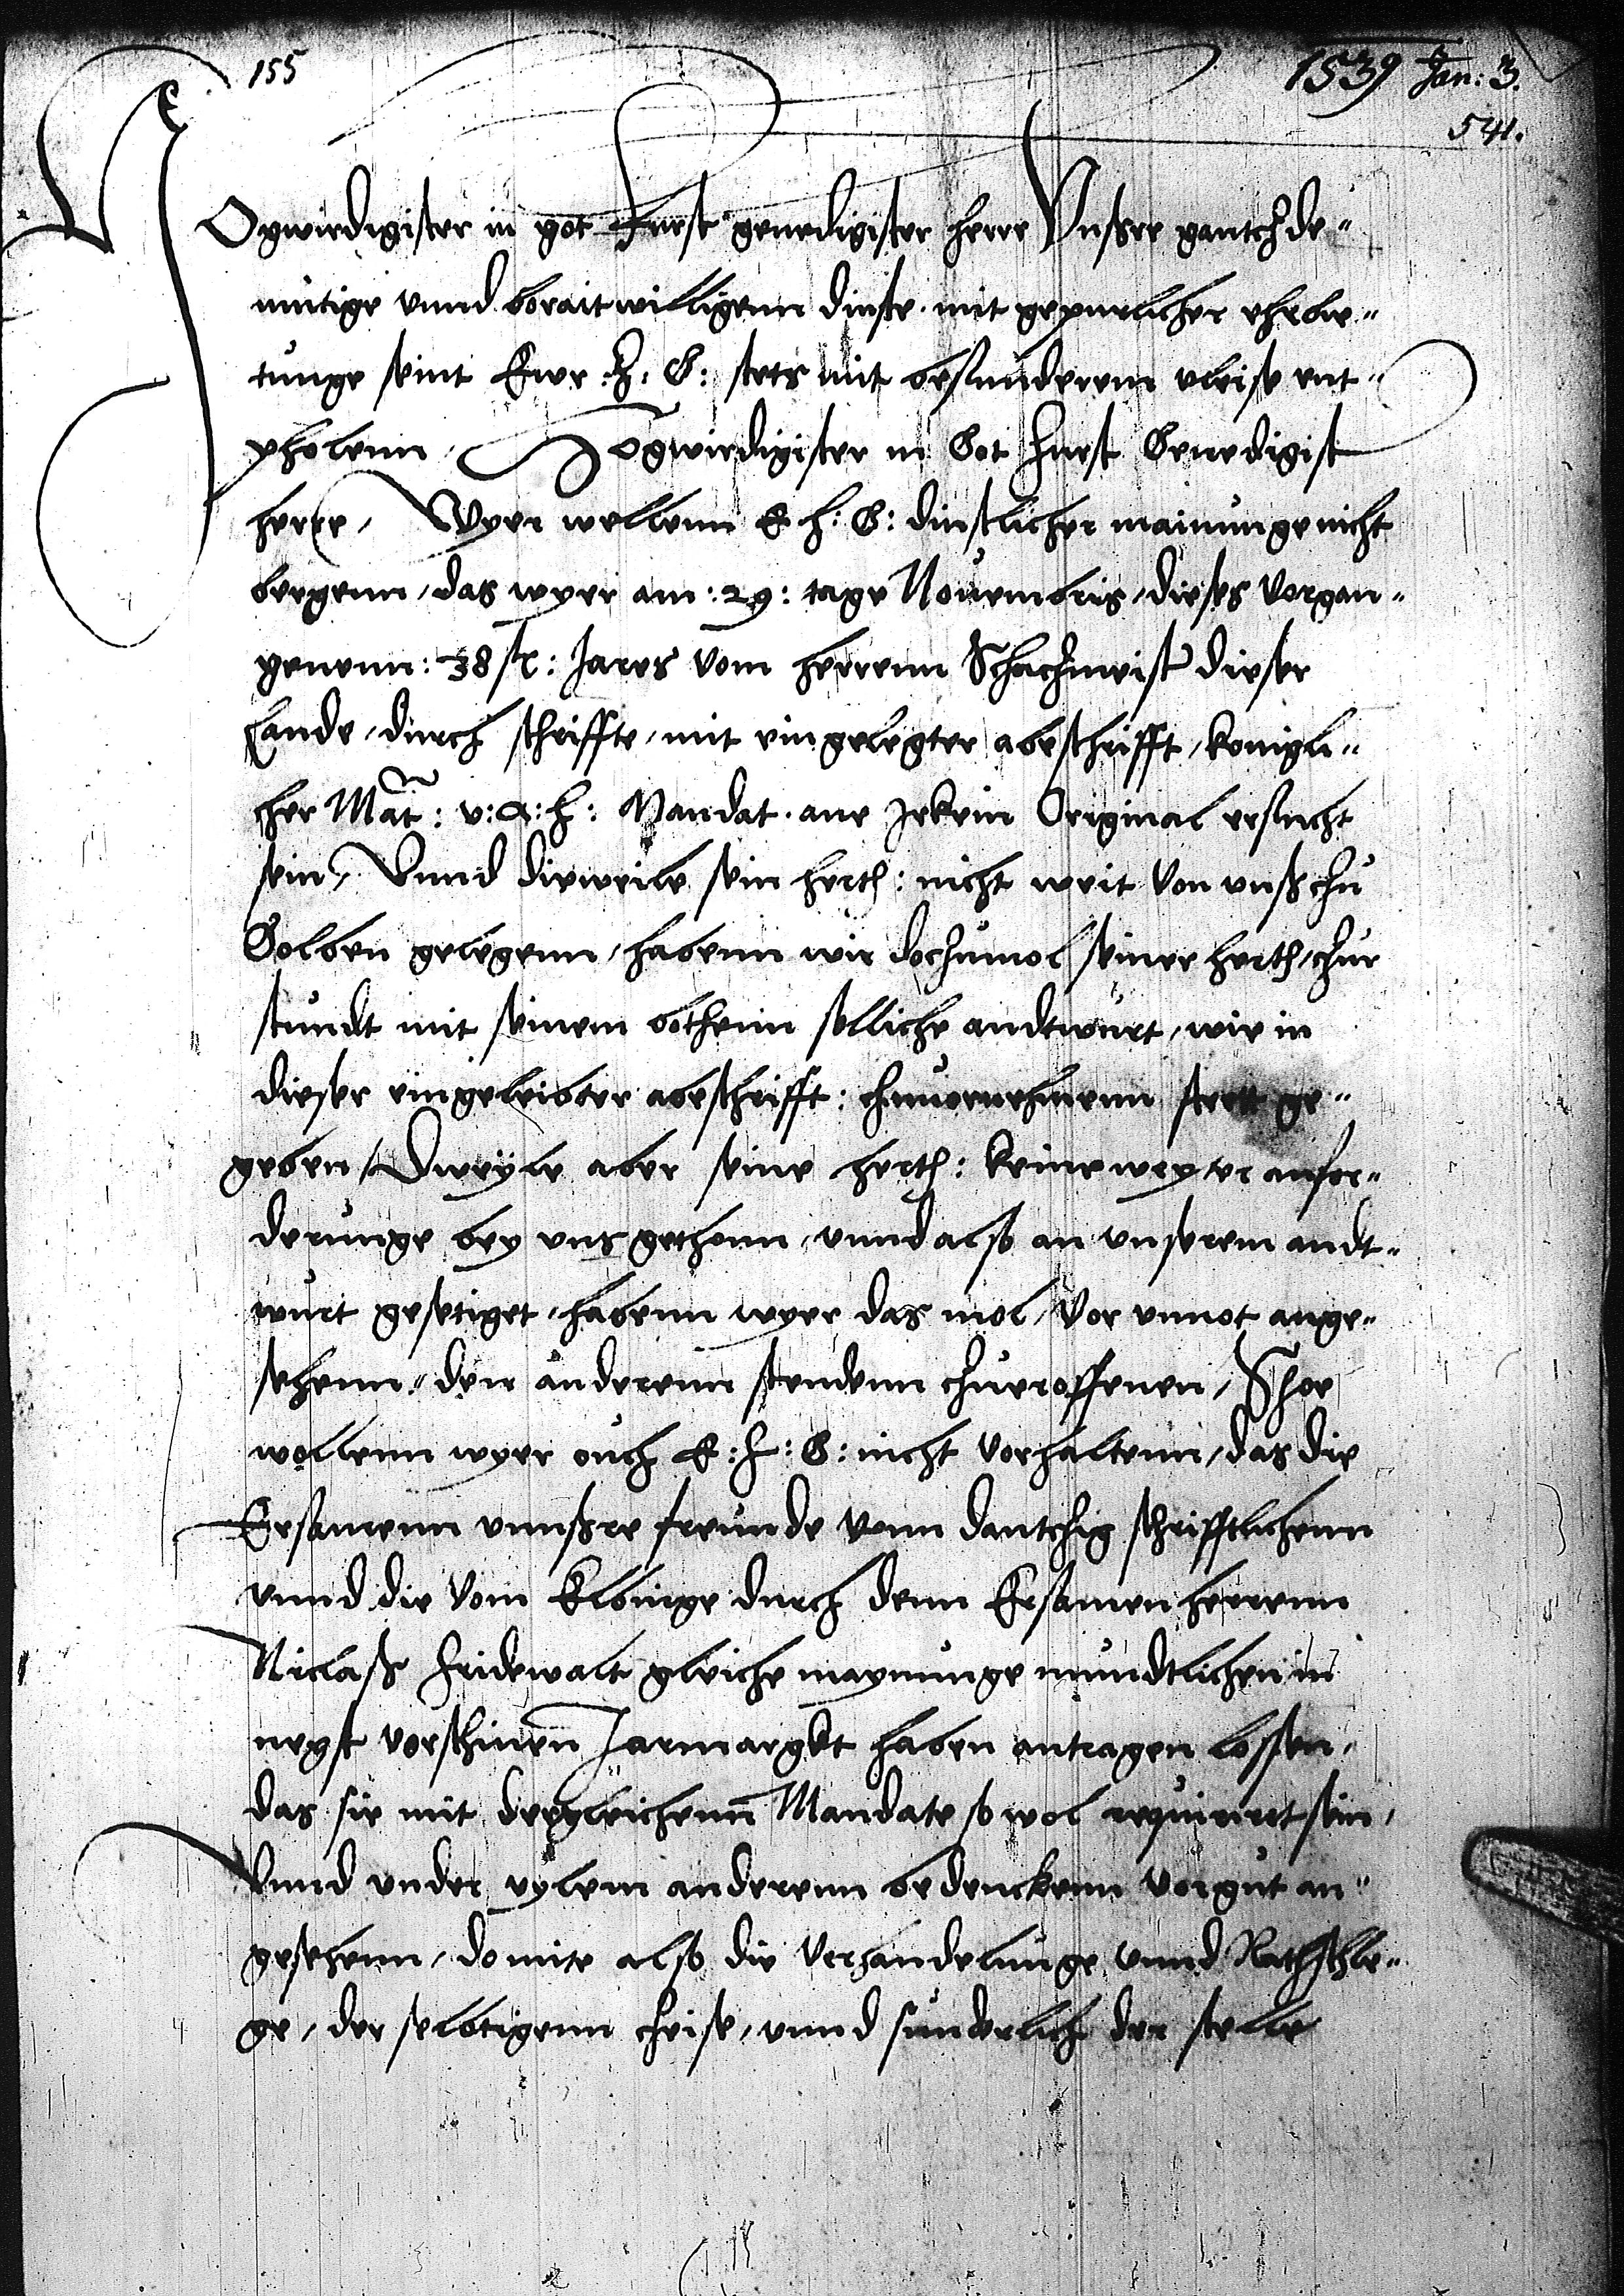 155
1539 Jan: 3.
541.
Hogwirdigister in got Furst genedigister herre Vnßere gantcz de-
mutige vnnd boraitwilligenn dinste mit gepurlicher eherbie-
tunge seint Ewr F: G: stets mit besunderem vleise ent-
pholenn, Hogwirdigister in Got Furst Genedigist
herre, Wyer wellenn E f: G: dinstlicher mainunge nicht
bergenn, das wyer am: 29: tage Nouembris, dieses vorgan-
genenn: 38 st: Jares vom herrenn Schaczmeist dieser
Lande, durch schriffte, mit eingelegter abeschrifft, konigli-
cher Mat: v: a: h: Mandat ane Jrkein Original ersucht
sein, Vnnd dieweile sein herth: nicht weit von vnß czu
Golben gelegenn, habenn wir doczumol seiner herth, czur
stundt mit seinem bothenn selliche andtwurt, wie in
dieser eingeleibter abeschrifft: czuuornehmenn stett ge-
geben, Dweyle aber seine herth: keine weyter anfor-
derunge bey vns gethonn, vnnd also an vnserem andt-
wurt gesetiget, habenn wyer das mol, vor vnnot ange-
sehenn, den anderenn stendenn czueroffenen, Szo
wollenn wyer ouch E: F: G: nicht vorhaltenn, das die
Ersamenn vnnßere freunde vonn dantczig schrifftlichenn
vnnd die vom Elbinge durch denn Ersamen herrenn
Niclaß Fridewalt gleiche maynunge mundtlichen in
negst vorschinen Jarmargkt haben antragen lossen,
das sie mit dergleichenn Mandate so wol requirirt sein,
Vnnd vnder vylem anderenn bedenckenn vorgut an-
gesehenn, domite also die Verhandelunge vnnd Rathschle-
ge, der selbtigenn cheise, vnnd sunderlich der stelle